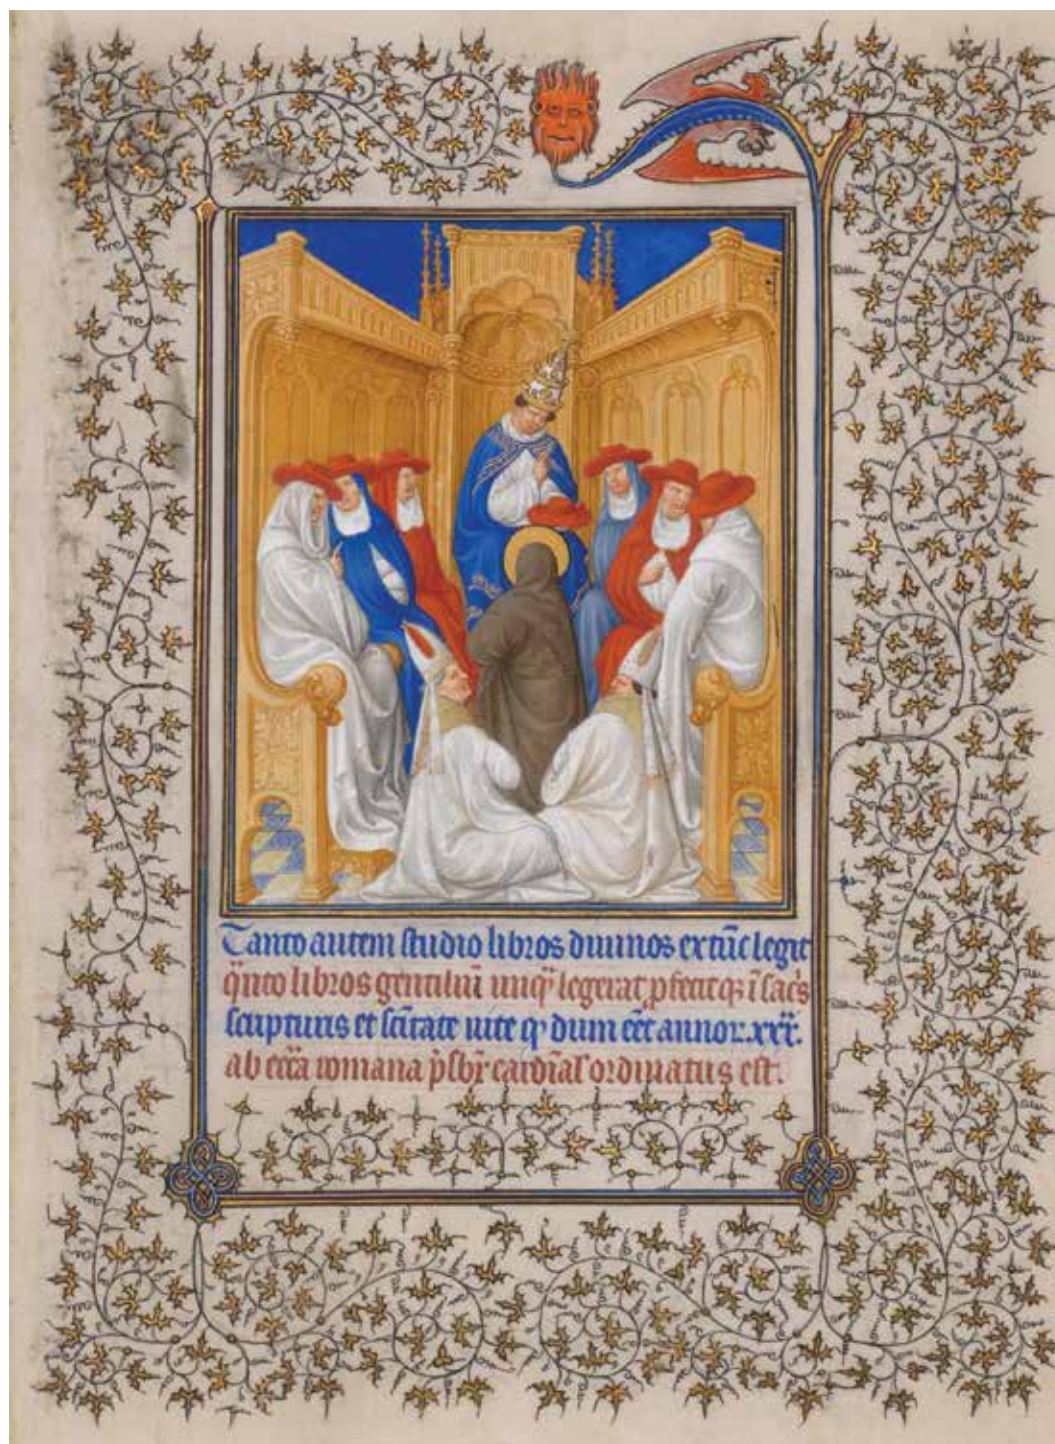 Tanto autem studio libros diuinos ex tūc legit
q̈nto libros gentiliū unq̃ legerat ꝓfecitq; ī sac̄s
scripturis et sc̄itate uite q̵ dum eēt annoꝝ .xxx̊.
ab ecc̄a romana p̄sbr̄ cardīal' ordinatus est.